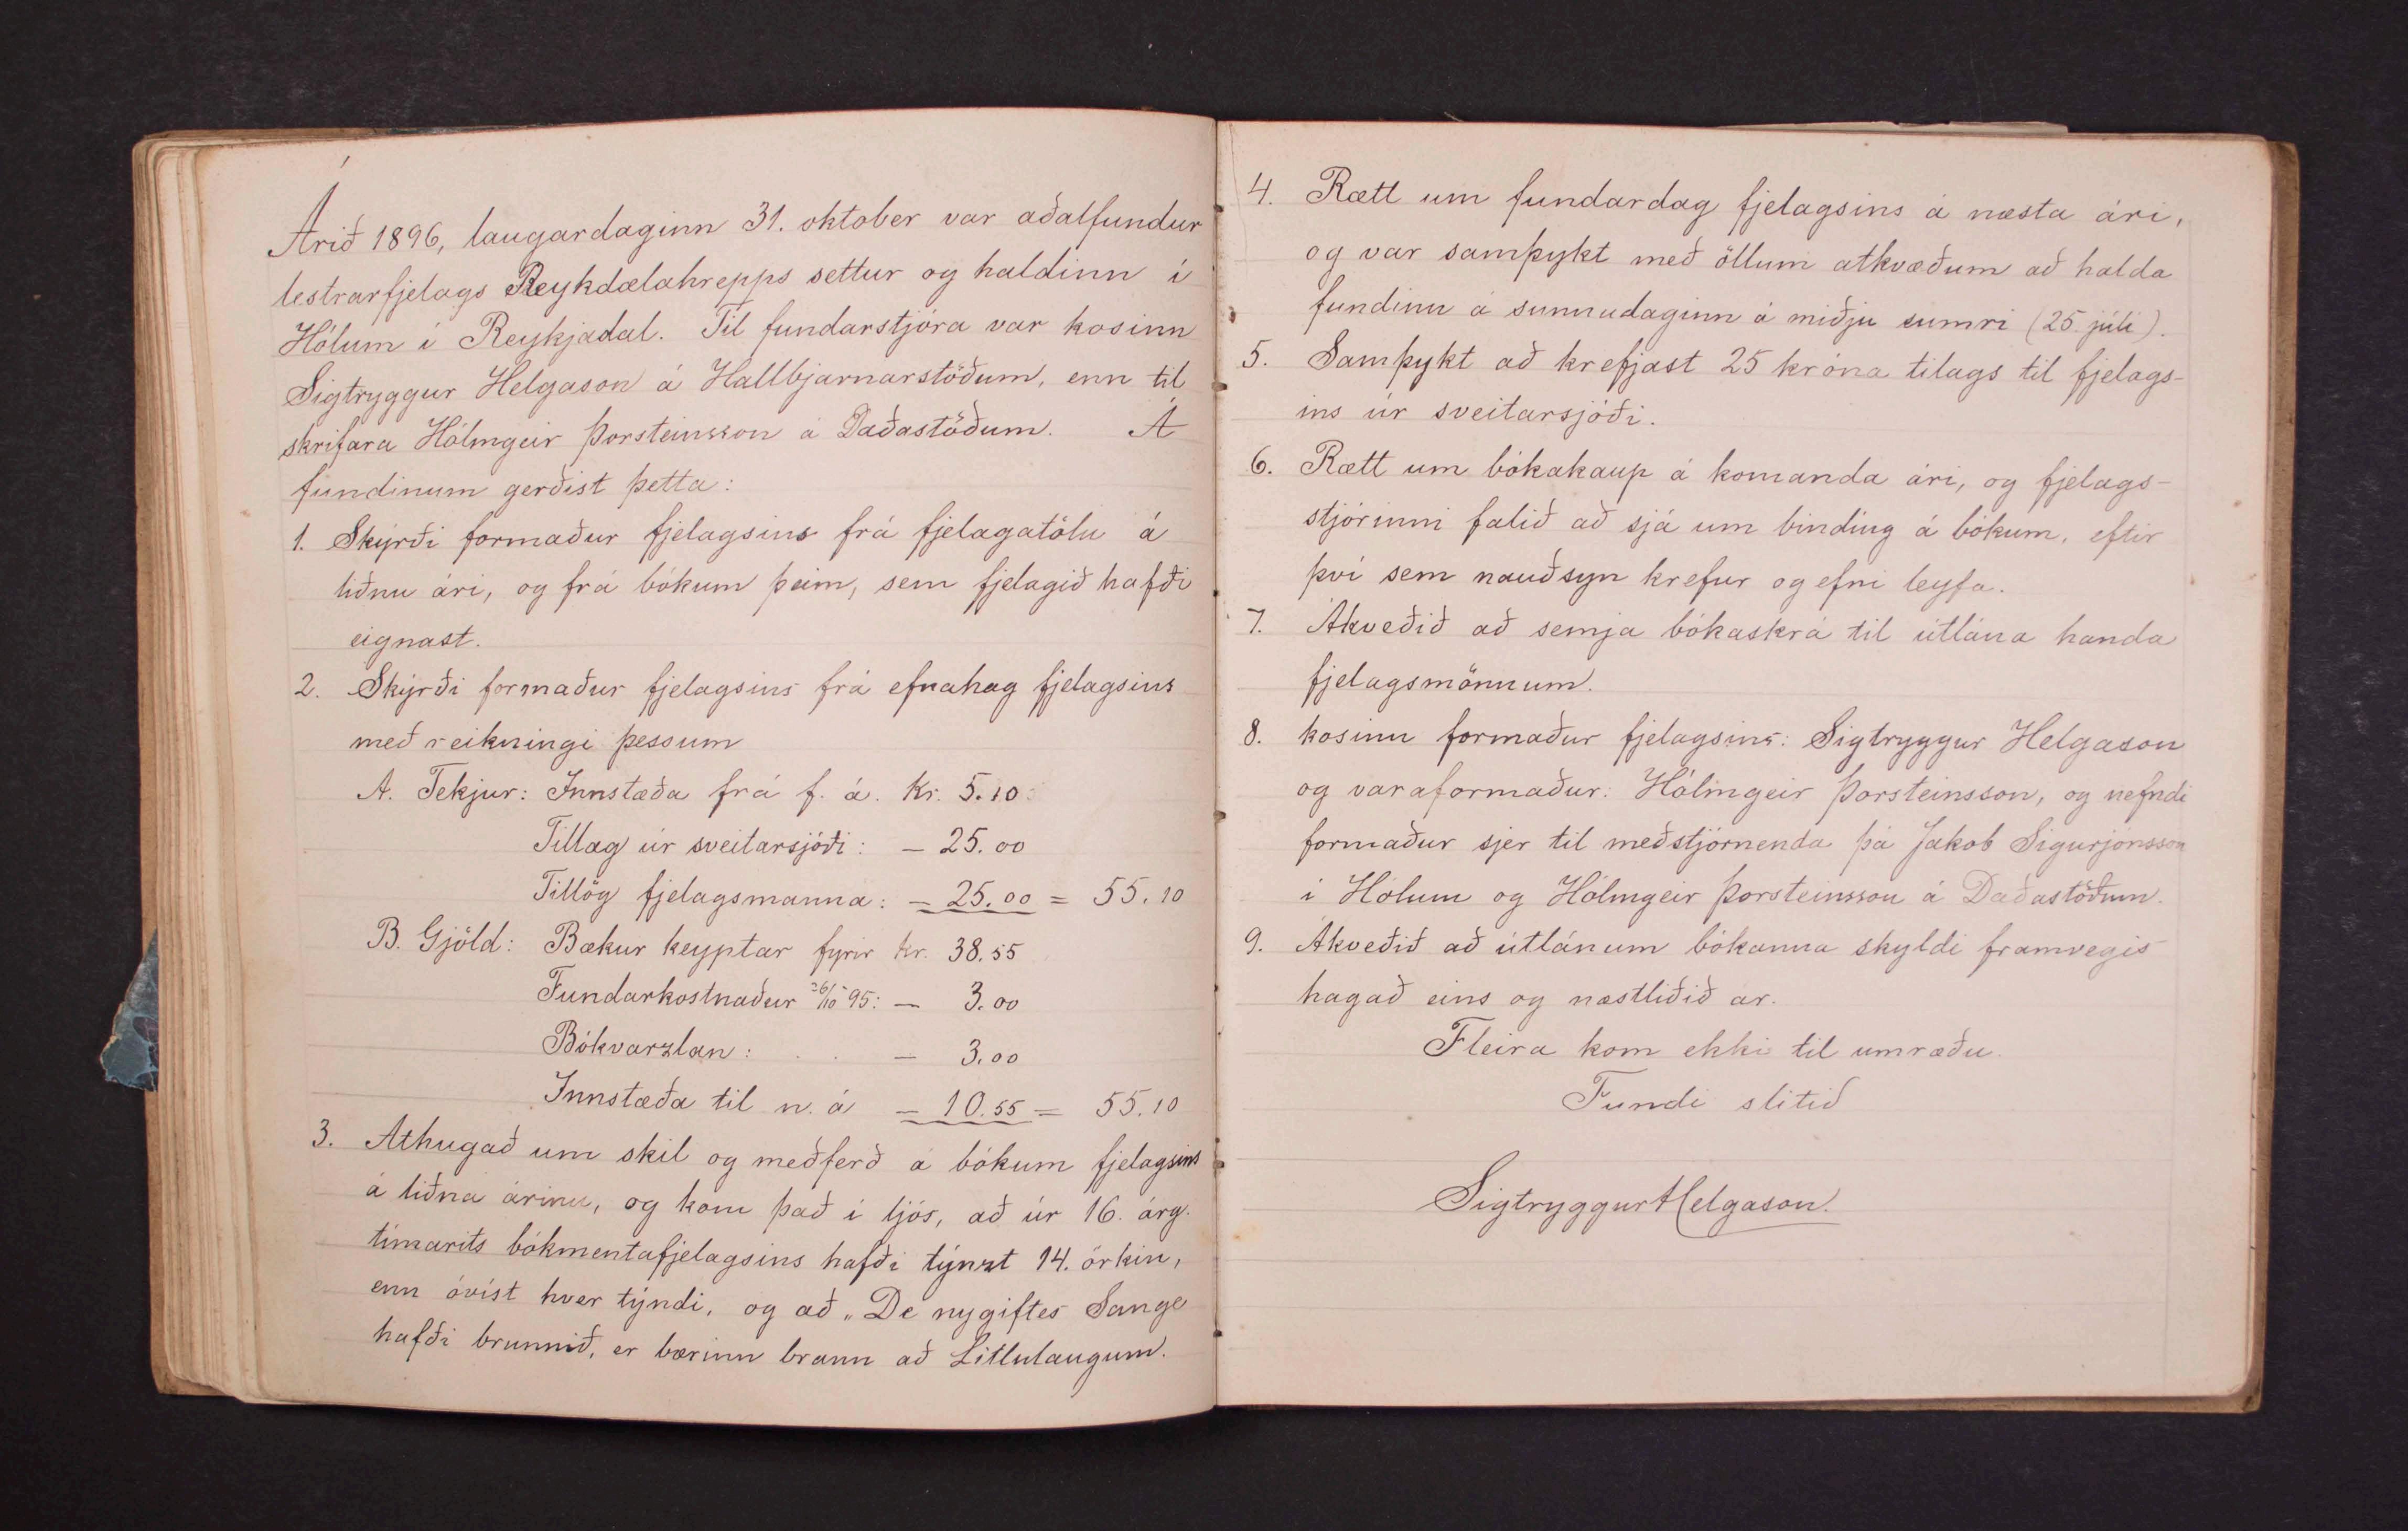 Árið 1896, laugardaginn 31. oktober var aðalfundur
lestrarfjelags Reykdælahrepps settur og haldinn í
Hólum í Reykjadal. Til fundarstjóra var kosinn
Sigtryggur Helgason á Hallbjarnarstöðum, enn til
skrifara Hólmgeir Þorsteinsson á Daðastöðum. Á
fundinum gerðist þetta:
1. Skýrði formaður fjelagsins frá fjelagatölu á
liðnu ári, og frá bókum þeim, sem fjelagið hafði
eignast.
2. Skýrði formaður fjelagsins frá efnahag fjelagsins
með reikningi þessum
A. Tekjur: Innstæða frá f. á. Kr. 5.10
Tillag úr sveitarsjóði: — 25.00
Tillög fjelagsmanna: — 25.00 = 55.10
B. Gjöld: Bækur keyptar fyrir kr. 38.55
Fundarkostnaður 26/10 95: — 3.00
Bókvarzlan: . . — 3.00
Innstæða til n. á — 10.55 = 55.10
3. Athugað um skil og meðferð á bókum fjelagsins
á liðna árinu, og kom það í ljós, að úr 16. árg.
tímarits bókmentafjelagsins hafði týnzt 14. örkin,
enn óvíst hver týndi, og að „De nygiftes Sange
hafði brunnið, er bærinn brann að Litlulaugum.
4. Rætt um fundardag fjelagsins á næsta ári,
og var samþykt með öllum atkvæðum að halda
fundinn á sunnudaginn á miðju sumri (25. júli).
5. Samþykt að krefjast 25 króna tilags til fjelags-
ins úr sveitarsjóði.
6. Rætt um bókakaup á komanda ári, og fjelags-
stjórinni falið að sjá um binding á bókum, eftir
því sem nauðsyn krefur og efni leyfa.
7. Ákveðið að semja bókaskrá til útlána handa
fjelagsmönnum.
8. kosinn formaður fjelagsins: Sigtryggur Helgason
og varaformaður: Hólmgeir Þorsteinsson, og nefndi
formaður sjer til meðstjórnenda þá Jakob Sigurjónsson
í Hólum og Hólmgeir Þorsteinsson á Daðastöðum.
9. Ákveðið að útlánum bókanna skyldi framvegis
hagað eins og næstliðið ar.
Fleira kom ekki til umræðu.
Fundi slitið
Sigtryggur Helgason.